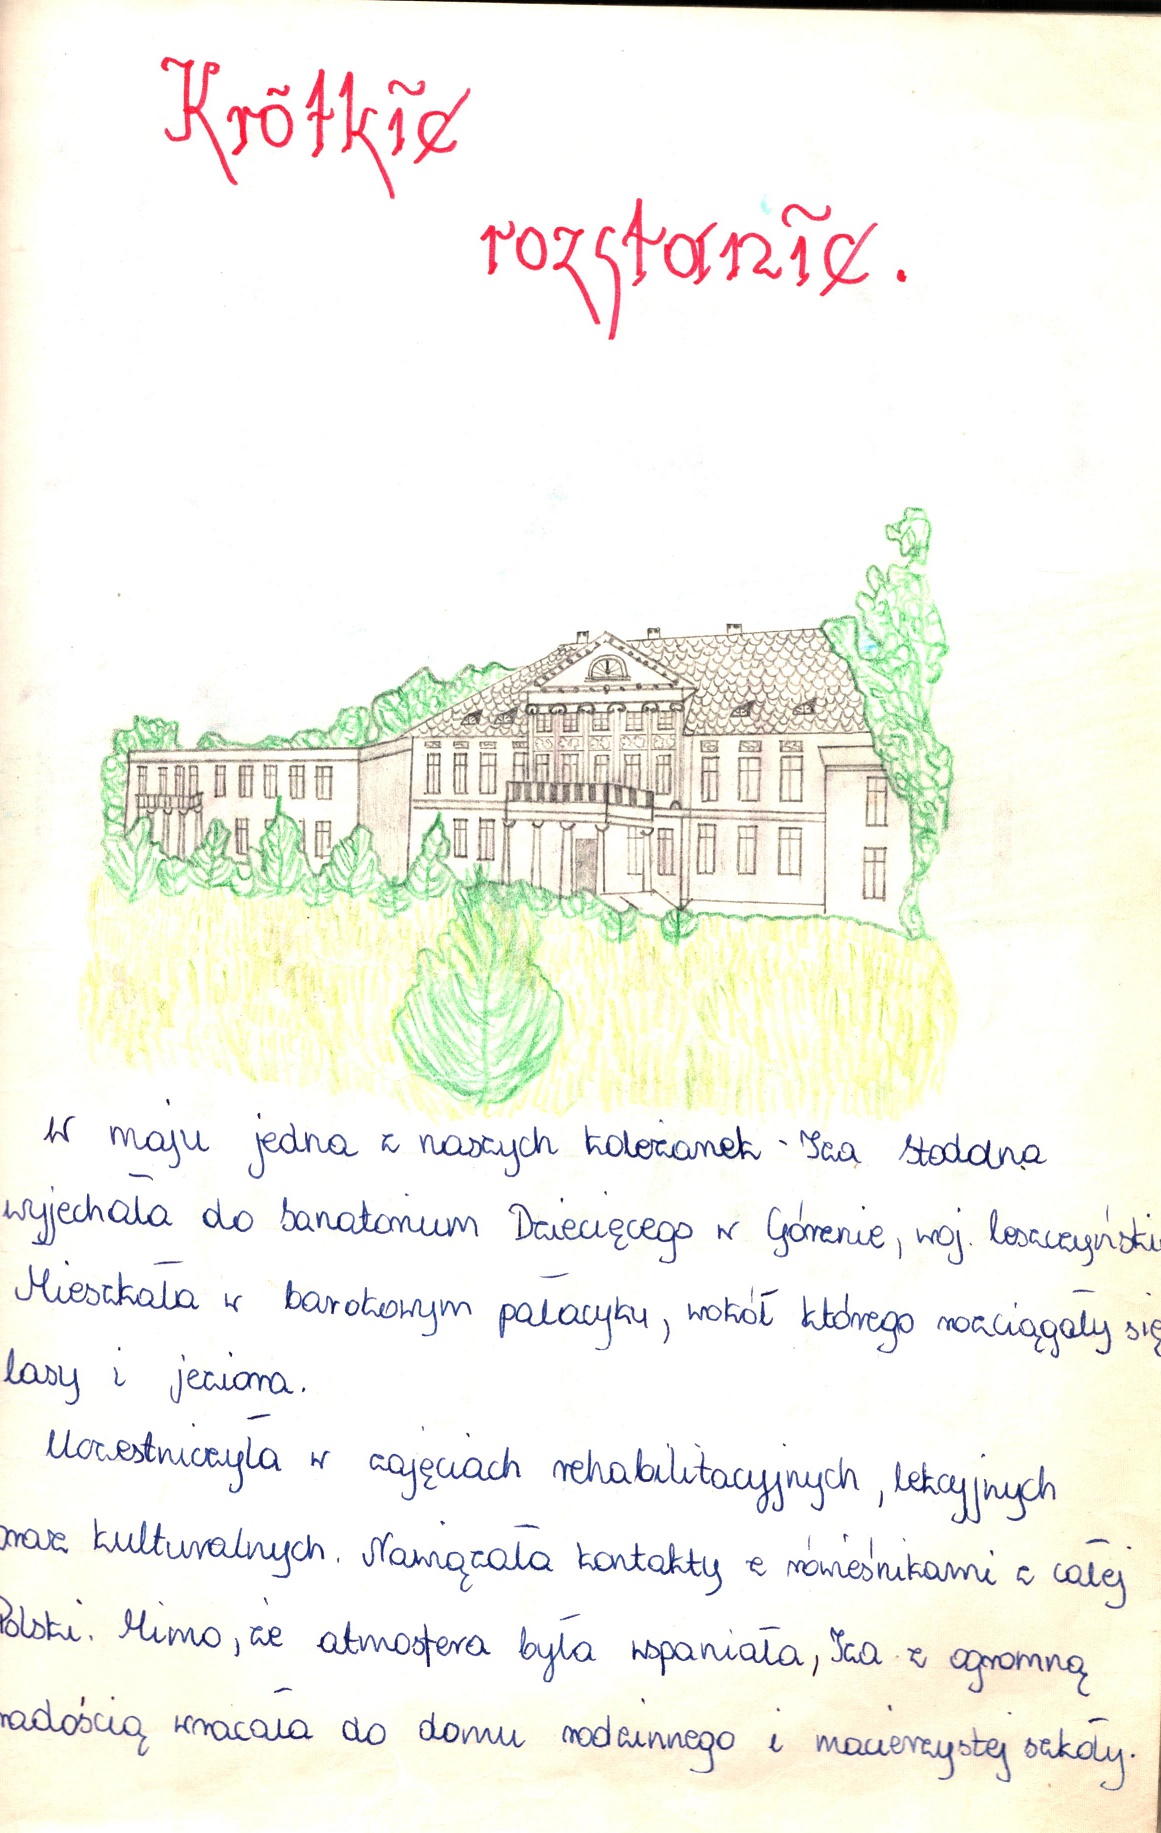 Krótkie
rozstanie.
W maju jedna z naszych koleżanek - Iza
wyjechała do Sanatorium Dziecięcego w Górznie, woj. leszczyńskie
Mieszkała w barokowym pałacyku, wokół którego rozciągały się
lasy i jeziora.
Uczestniczyła w zajęciach rehabilitacyjnych, lekcyjnych
oraz kulturalnych. Nawiązała kontakty z rówieśnikami z całej
Polski. Mimo, że atmosfera była wspaniała, Iza z ogromną
radością wracała do domu rodzinnego i macierzystej szkoły.